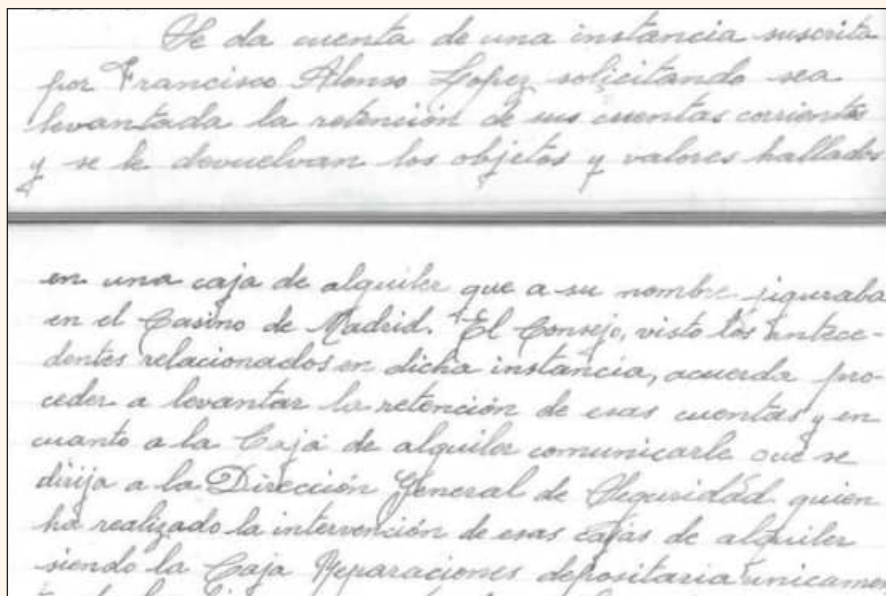 Se da cuenta de una instancia suscrita
por Francisco Alonso Lopez solicitando sea
levantada la retención de sus cuentas corrientes
y se le devuelvan los objetos y valores hallados
en una caja de alquiler que a su nombre figuraba
en el Casino de Madrid. El Consejo, visto los antece-
dentes relacionados en dicha instancia, acuerda pro-
ceder a levantar la retención de esas cuentas y en
cuanto a la Caja de alquiler comunicarle que se
dirija a la Dirección General de Seguridad quien
ha realizado la intervención de esas cajas de alquiler
siendo la Caja Reparaciones depositaria unicamen